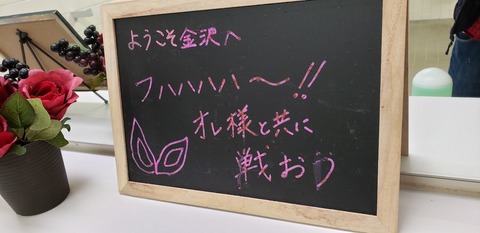 ようこそ金沢へ
フハハハハ〜!!
オレ様と共に
戦おう